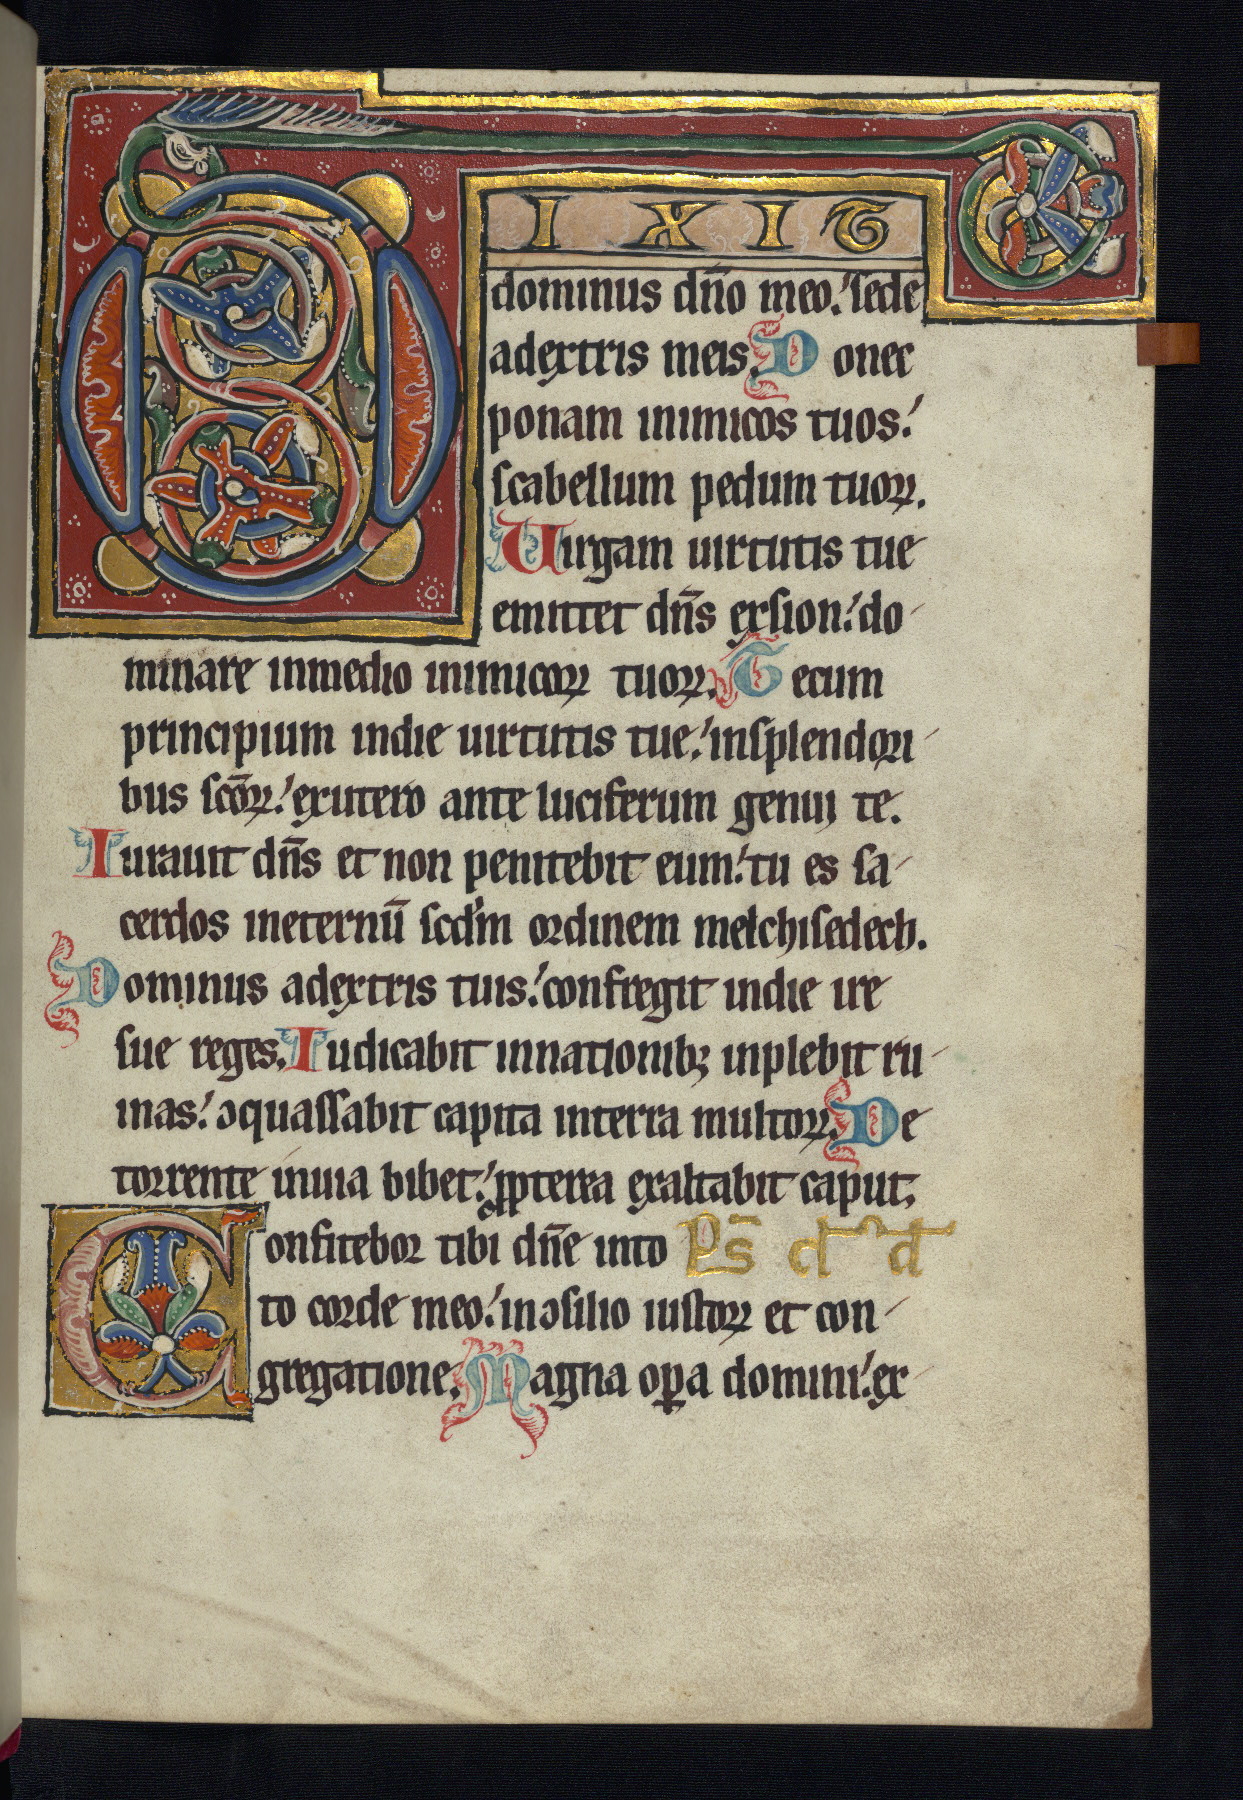 DIXIT
dominus dn̄o meo. sede
adextris meis. Donec
ponam inimicos tuos.
scabellum pedum tuoꝝ.
Uirgam uirtutis tue
emittet dn̄s exsion. do
minare inmedio inimicoꝝ tuoꝝ. Tecum
principium indie uirtutis tue. insplendori
bus scōꝝ. exutero ante luciferum genui te.
Iurauit dn̄s et non penitebit eum. tu es sa
cerdos ineternū scdm̄ ordinem melchisedech.
Dominus adextris tuis. confregit indie ire
sue reges. Iudicabit innationibꝫ inplebit ru
inas. ↄquassabit capita interra multoꝝ. De
torrente inuia bibet. ꝓpterea exaltabit caput.
Confitebor tibi dn̄e into Ps̄ d d
to corde meo. inↄsilio iustoꝝ et con
gregatione. Magna oꝑa domini. ex